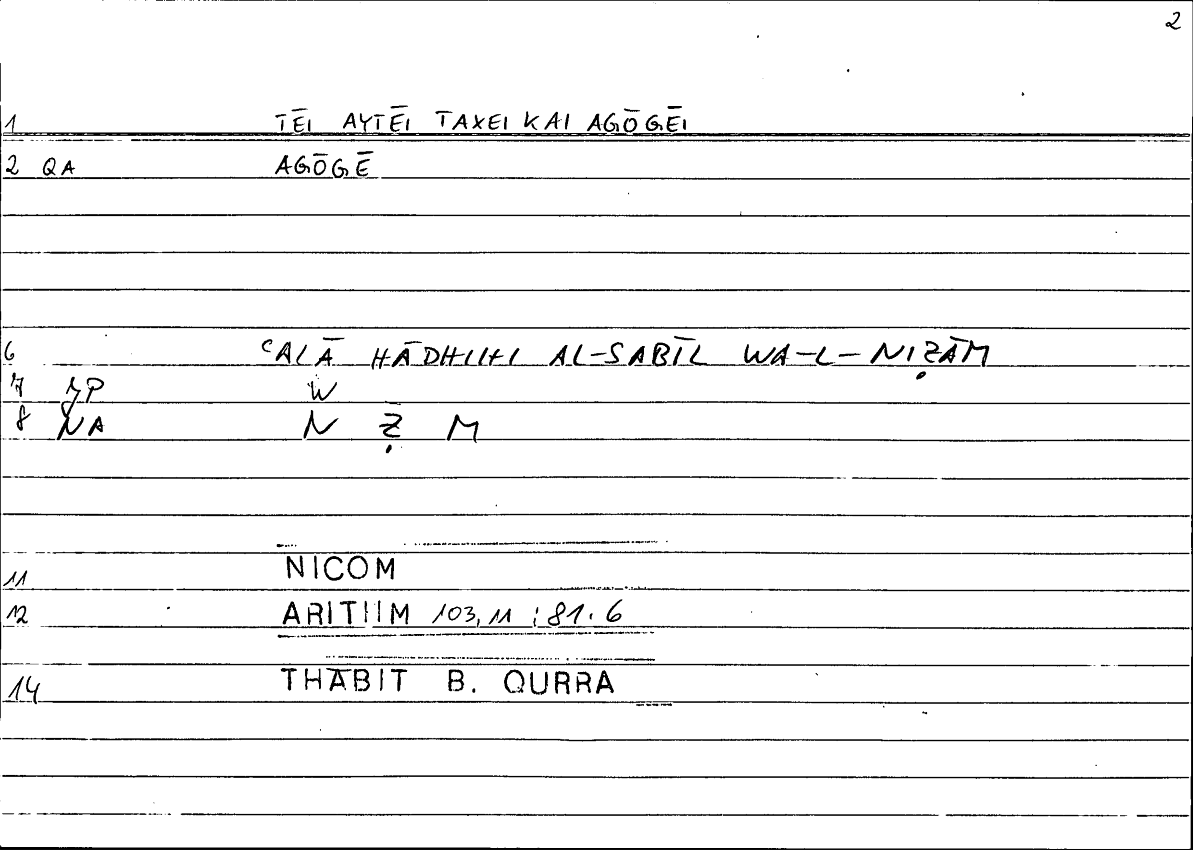 2
1 TĒI AYTĒI TAXEI KAI AGŌGĒI
2 QA AGŌGĒ
6 ʿALĀ HĀDHIHI AL-SABĪL WA-L-NIẒĀM
7 JP W
8 NA N Ẓ M
11 NICOM
12 ARITHM 103,11 ; 81.6
14 THĀBIT B. QURRA